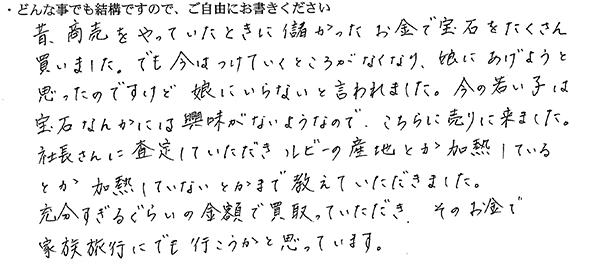 ・どんな事でも結構ですので、ご自由にお書きください
昔、商売をやっていたときに儲かったお金で宝石をたくさん
買いました。でも今はつけていくところがなくなり、娘にあげようと
思ったのですけど娘にいらないと言われました。今の若い子は
宝石なんかには興味がないようなので、こちらに売りに来ました。
社長さんに査定していただきルビーの産地とか加熱している
とか加熱していないとかまで教えていただきました。
充分すぎるぐらいの金額で買取っていただき、そのお金で
家族旅行にでも行こうかと思っています。